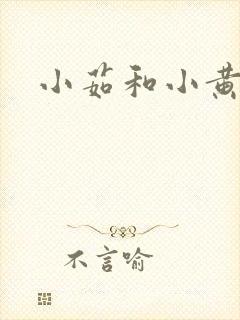 小茹和小黄
不言喻